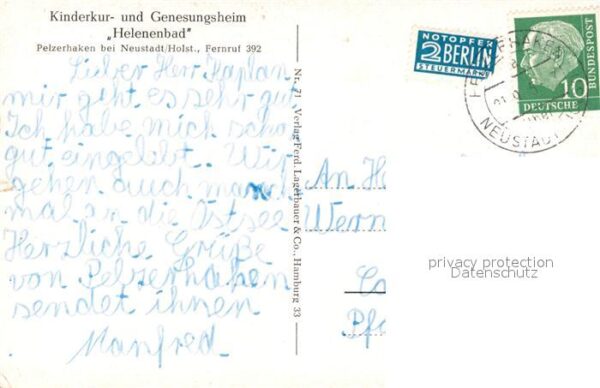 Kinderkur- und Genesungsheim
„Helenenbad"
Pelzerhaken bei Neustadt/Holst., Fernruf 392
Lieber Herr Kaplan
mir geht es sehr gut
Ich habe mich schon
gut eingelebt. Wir
gehen auch manch
mal an die Ostsee
Herzliche Grüße
von Pelzerhaken
sendet ihnen
Manfred
Nr. 71 Verlag Ferd. Lagerbauer & Co., Hamburg 33
NOTOPFER
2 BERLIN
STEUERMARKE
DEUTSCHE
BUNDESPOST
10
NEUSTADT
An H
Wern
Pfa
privacy protection
Datenschutz